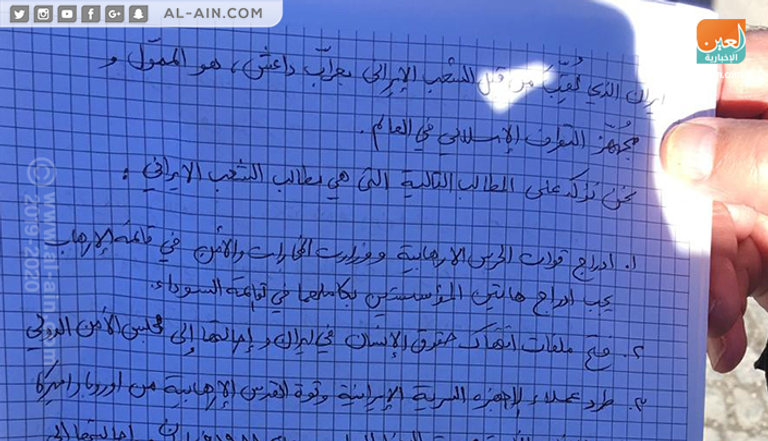 AL-AIN.COM
العين
الإخبارية
© www.al-ain.com
2019-2020
ايران الذي لُقِّبَ من قبل الشعب الإيراني بعرّاب داعش، هو المموّل و
مجهّز التطرف الإسلامي في العالم.
نحن نؤكد على المطالب التالية التي هي مطالب الشعب الايراني:
١. ادراج قوات الحرس الارهابية ووزارت المخابرات والأمن في قائمة الإرهاب
يجب ادراج هاتين المؤسستين بكاملهما في قائمة السوداء.
٢. فتح ملفات انتهاك حقوق الإنسان في ايران و إحالتها إلى مجلس الأمن الدولي
٣. طرد عملاء لإجهزه السرية الإيرانية وقوة القدس الإرهابية من اوروبا و اميركا